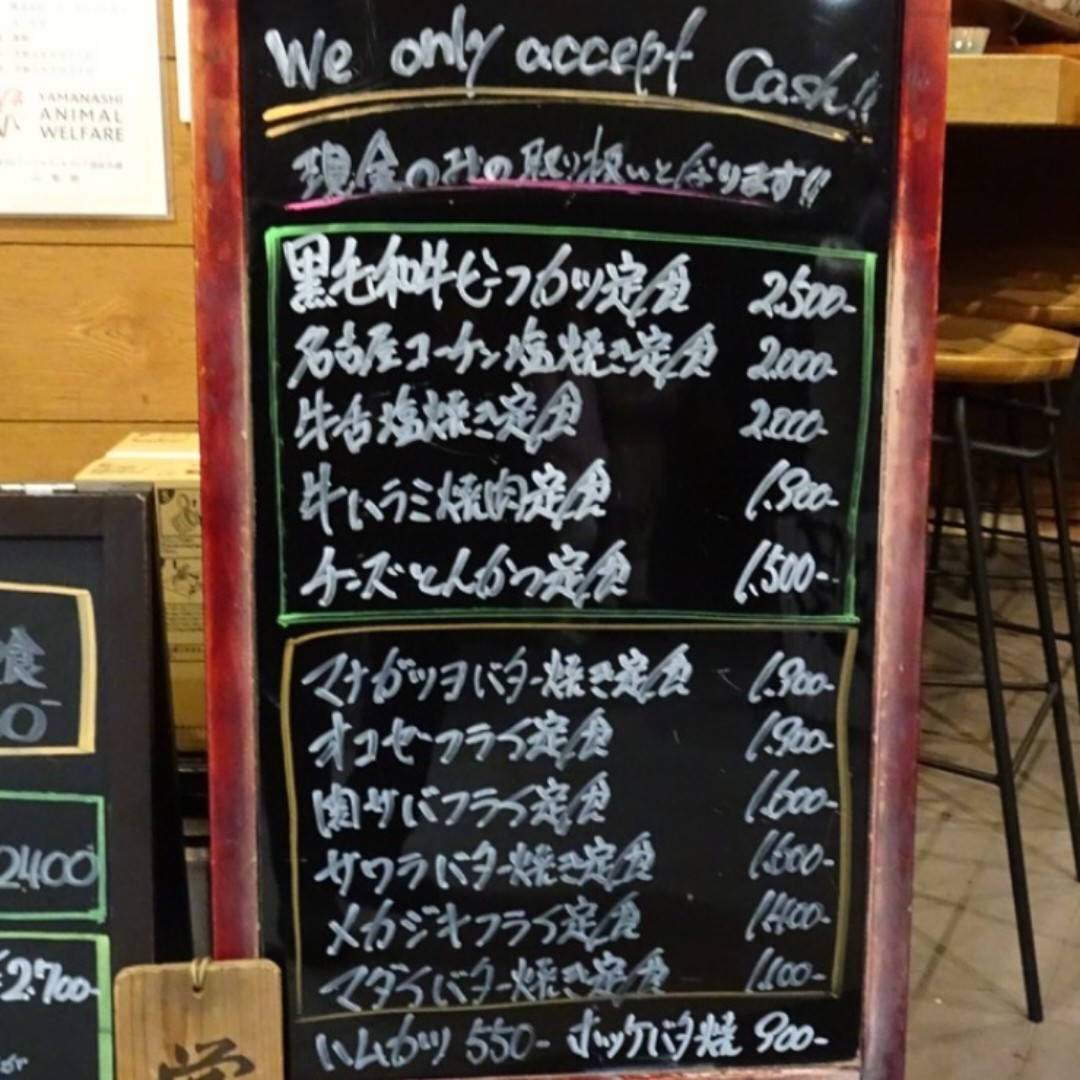 We only accept Cash!!
現金のみの取り扱いとなります!!
黒毛和牛ビーフカツ定食 2,500-
名古屋コーチン塩焼き定食 2,000-
牛舌塩焼き定食 2,000-
牛ハラミ焼肉定食 1,900-
チーズとんかつ定食 1,500-
マナガツヲバター焼き定食 1,900-
オコゼフライ定食 1,900-
関サバフライ定食 1,600-
サワラバター焼き定食 1,500-
メカジキフライ定食 1,400-
マダイバター焼き定食 1,100-
ハムカツ 550- ホッケバタ焼 900-
YAMANASHI
ANIMAL
WELFARE
食
0-
2400
2.700-